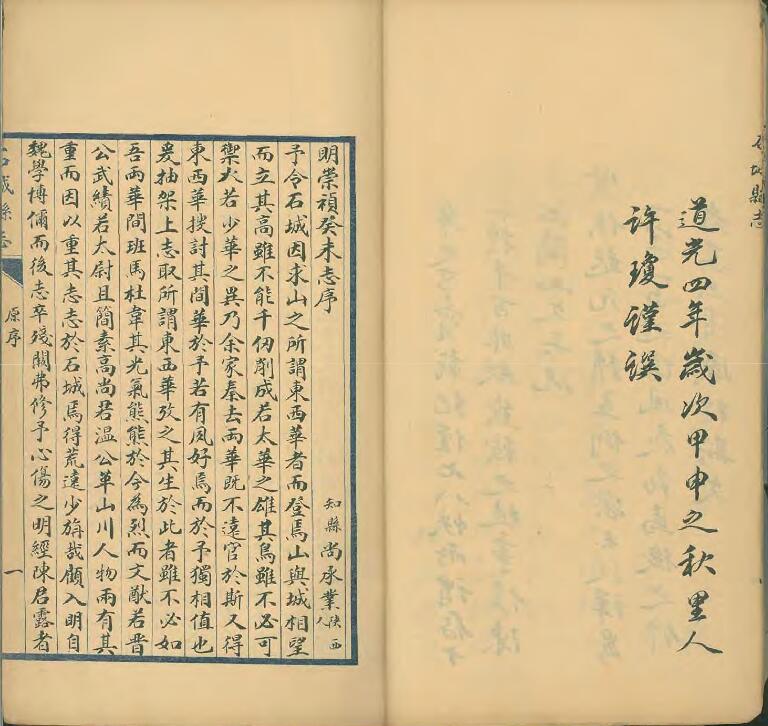 道光四年歲次甲申之秋里人
許瓊謹譔
明崇禎癸未志序
知縣尚承業陝西人
予令石城因求山之所謂東西華者而登焉山與城相望
而立其高雖不能千仞削成若太華之雄其鳥雖不必可
禦火若少華之異乃余家秦去兩華既不遠官於斯又得
東西華搜討其間華於予若有夙好焉而於予獨相值也
爰抽架上志取所謂東西華攷之其生於此者雖不必如
吾兩華間班馬杜韋其光氣熊熊於今為烈而文猷若晋
公武績若太尉且簡素高尚若溫公革山川人物兩有其
重而因以重其志志於石城焉得荒遠少旃哉顧入明自
魏學博偁而後志卒殘闕弗修予心傷之明經陳君露者
石城縣志
原序
一